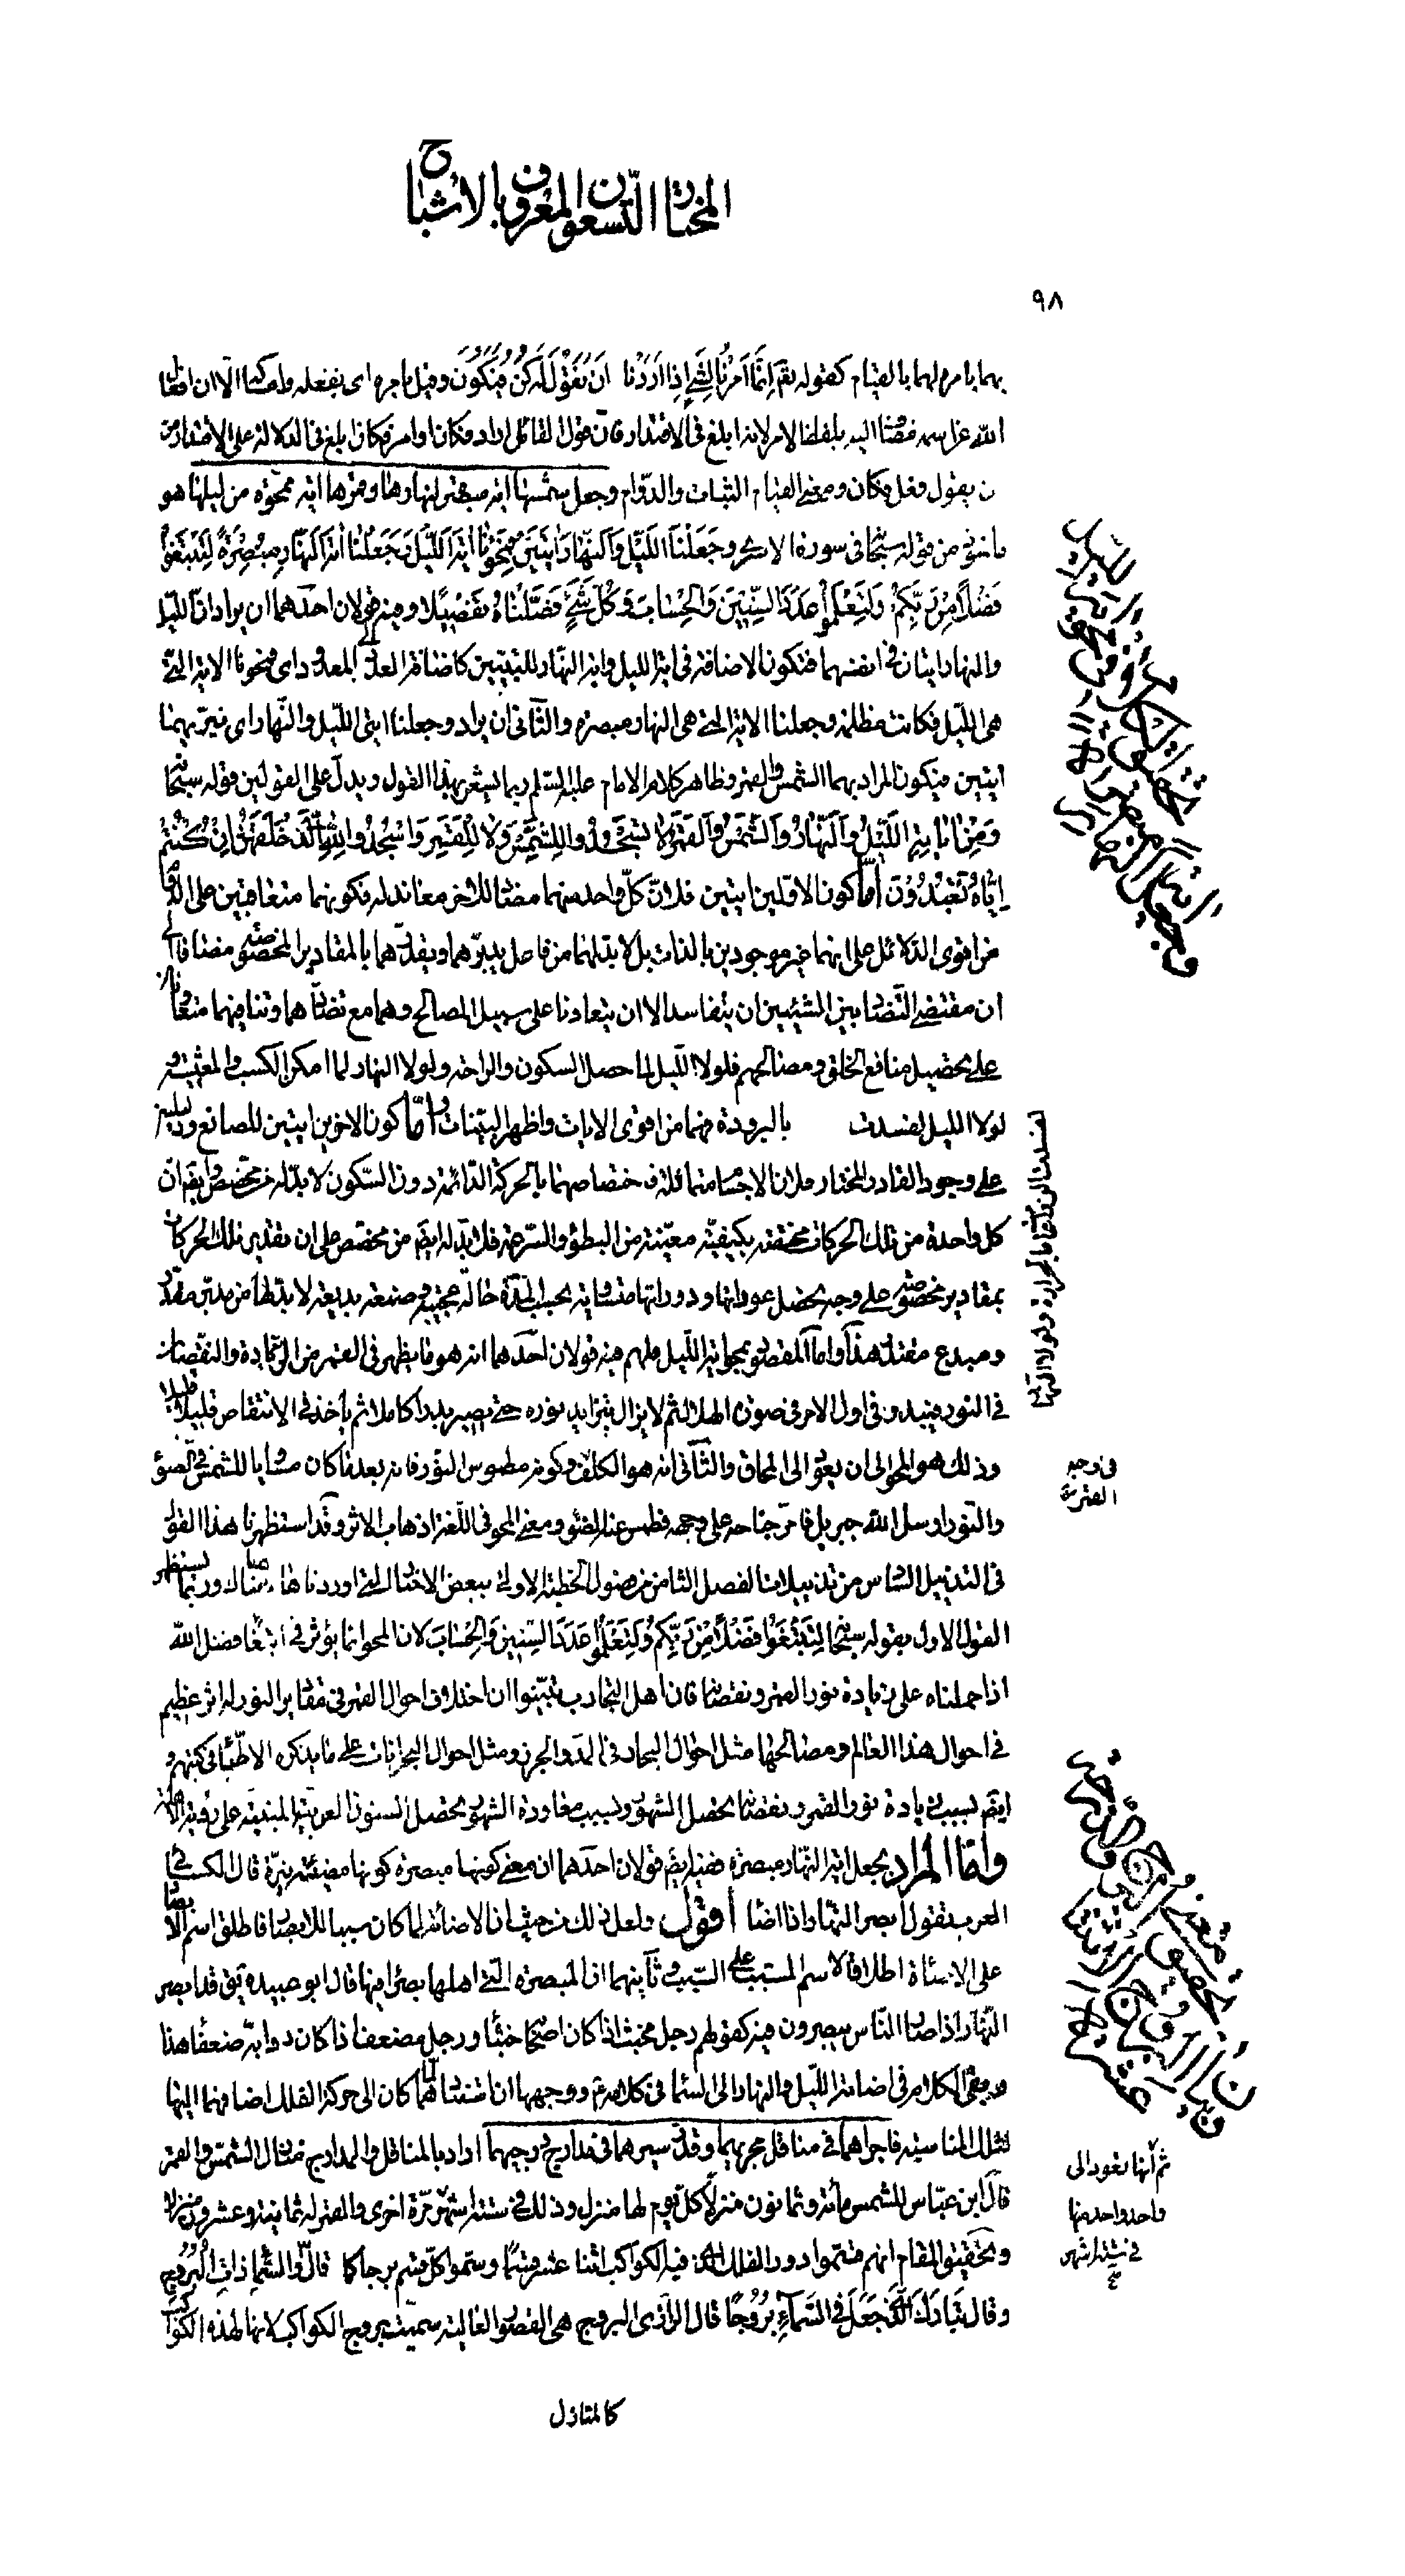 المختارة التسعون المعروف بالأشباح
٩٨
بهما بامره لهما بالقيام كقوله تعم إِنَّمَا أَمْرُنَا لِشَيْءٍ إِذَا أَرَدْنَا أَنْ نَقُولَ لَهُ كُنْ فَيَكُونُ وقيل بامره اى بفعله وامساكه الا ان افعال
الله عز اسمه فضفنا اليه بلفظ الامر لانه ابلغ فى الاقتدار فان قول القائل اراد فكان او امر فكان ابلغ فى الدلالة على الاقتدار من
ن يقول فعل فكان ومعنى القيام الثبات والدوام وجعل شمسها اية مبصرة لنهارها وقمرها اية ممحوة من ليلها هو
ماخوذ من قوله سبحانه فى سورة الاسرى وَجَعَلْنَا اللَّيْلَ وَالنَّهَارَ آيَتَيْنِ فَمَحَوْنَا آيَةَ اللَّيْلِ وَجَعَلْنَا آيَةَ النَّهَارِ مُبْصِرَةً لِتَبْتَغُوا
فَضْلًا مِنْ رَبِّكُمْ وَلِتَعْلَمُوا عَدَدَ السِّنِينَ وَالْحِسَابَ وَكُلَّ شَيْءٍ فَصَّلْنَاهُ تَفْصِيلًا وفيه قولان احدهما ان يراد ان الليل
والنهار ايتان فى انفسهما فتكون الاضافة فى اية الليل واية النهار للتبيين كاضافة العدد الى المعدود اى فمحونا الاية التى
هى الليل فكانت مظلمة وجعلنا الاية التى هى النهار مبصرة والثانى ان يراد وجعلنا ايتى الليل والنهار اى نيريهما
ايتين فيكون المراد بهما الشمس والقمر وظاهر كلام الامام عليه السلم ربما يشعر بهذا القول ويدل على القولين قوله سبحانه
وَمِنْ آيَاتِهِ اللَّيْلُ وَالنَّهَارُ وَالشَّمْسُ وَالْقَمَرُ لَا تَسْجُدُوا لِلشَّمْسِ وَلَا لِلْقَمَرِ وَاسْجُدُوا لِلَّهِ الَّذِي خَلَقَهُنَّ إِنْ كُنْتُمْ
إِيَّاهُ تَعْبُدُونَ أما كون الاولين ايتين فلان كل واحد منهما مضاد للاخر معاند له فكونهما متعاقبين على الدوام
من اقوى الدلائل على انهما غير موجودين بالذات بل لا بد لهما من فاعل يدبرهما ويقدرهما بالمقادير المخصوصة مضافا الى
ان مقتضى التضاد بين الشيئين ان يتفاسدا لا ان يتعاونا على سبيل المصالح وهما مع تضادهما وتنافيهما متعاونان
على تحصيل منافع الخلق ومصالحهم فلولا الليل لما حصل السكون والراحة ولولا النهار لما امكن الكسب والمعيشة و
لولا الليل لفسدت بالبرودة فهما من اقوى الايات واظهر البينات واما كون الاخرين ايتين للصانع ودليلين
على وجود القادر المختار فلان الاجسام متماثلة فاختصاصهما بالحركة الدائمة دون السكون لا بد له من مخصص وايضا ان
كل واحدة من تلك الحركات مختصة بكيفية معينة من البطؤ والسرعة فلا بد له ايضا من مخصص على ان تقدير تلك الحركات
بمقادير مخصوصة على وجه يحصل عوداتها ودوراتها متساوية بحسب المدة حالة عجيبة وصنعة بديعة لا بد لها من مدبر مقدر
ومبدع مقتدر هذا واما المقصود بمحو اية الليل فلهم فيه قولان احدهما انه هو ما يظهر فى القمر من الزيادة والنقصان
فى النور فيبدو فى اول الامر فى صورة الهلال ثم لا يزال يتزايد نوره حتى يصير بدرا كاملا ثم ياخذ فى الانتقاص قليلا قليلا
وذلك هو المحو الى ان يعود الى المحاق والثانى انه هو الكلف وكونه مطموس النور فانه بعد ما كان مساويا للشمس فى الضوء
والنور ارسل الله جبريل فامر جناحه على وجهه فطمس عنه الضوء ومعنى المحو فى اللغة اذهاب الاثر وقد استظهرنا هذا القول
فى التذنيل السادس من تذنيلات الفصل الثامن من فصول الخطبة الاولى ببعض الاخبار التى اوردناها هناك وربما يستظهر
القول الاول بقوله سبحانه لِتَبْتَغُوا فَضْلًا مِنْ رَبِّكُمْ وَلِتَعْلَمُوا عَدَدَ السِّنِينَ وَالْحِسَابَ لان المحو انما يؤثر فى ابتغاء فضل الله
اذا حملناه على زيادة نور القمر ونقصانه فان اهل التجارب تبينوا ان اختلاف احوال القمر فى مقادير النور له اثر عظيم
فى احوال هذا العالم ومصالحها مثل احوال البحار فى المد والجزر ومثل احوال البحرانات على ما يذكره الاطباء فى كتبهم و
ايضا بسبب زيادة نور القمر ونقصانه يحصل الشهور وبسبب معاودة الشهور يحصل السنون العربية المبنية على رؤية الاهلة
واما المراد بجعل اية النهار مبصرة ففيه ايضا قولان احدهما ان معنى كونها مبصرة كونها مضيئة نيرة قال الكسائى
العرب تقول ابصر النهار اذا اضاء أقول ولعل ذلك من حيث ان الاضائة لما كان سببا للابصار فاطلق اسم الابصار
على الاضائة اطلاقا لاسم المسبب على السبب وثانيهما ان المبصرة التى اهلها بصراء فيها قال ابو عبيدة يق قد ابصر
النهار اذا صار الناس يبصرون فيه كقولهم رجل مخبث اذا كان اصحابه خبثاء ورجل مضعف اذا كان دوابه ضعفاء هذا
وبقى الكلام فى اضافة الليل والنهار الى السماء فى كلامه ع ووجهها ان استنادهما لما كان الى حركة الفلك اضافهما اليها
لتلك المناسبة فاجراهما فى مناقل مجريهما وقدر سيرهما فى مدارج درجهما اراد بالمناقل والمدارج منازل الشمس والقمر
قال ابن عباس للشمس مائة وثمانون منزلا كل يوم لها منزل وذلك فى ستة اشهر مرة اخرى والقمر له ثمانية وعشرون منزلا
وتحقيق المقام انهم قسموا دور الفلك الذى فيه الكواكب اثنا عشر قسما وسموا كل قسم برجا كما قال وَالسَّمَاءِ ذَاتِ الْبُرُوجِ
وقال تَبَارَكَ الَّذِي جَعَلَ فِي السَّمَاءِ بُرُوجًا قال الرازى البروج هى القصور العالية سميت بروج الكواكب لانها لهذه الكواكب
كالمنازل
لفسدت الزروع والثمار بالحرارة ولولا النهار
فى وجه
القمر
ثم انها تعود الى
واحد واحد منها
فى ستة اشهر